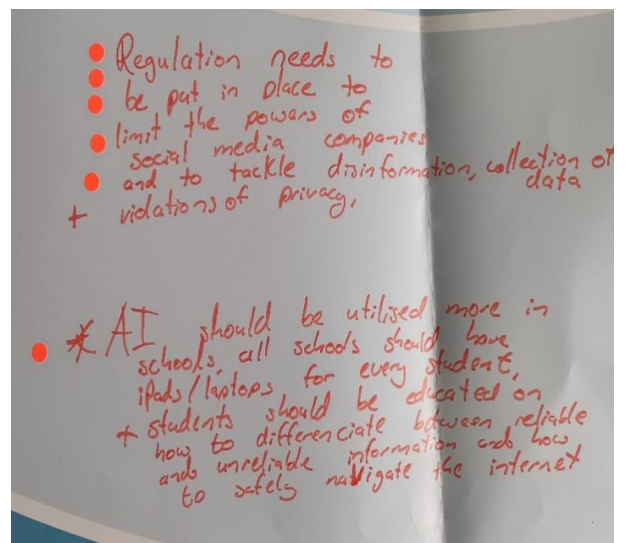 Regulation needs to
be put in place to
limit the powers of
social media companies
and to tackle disinformation, collection of
data
+ violations of privacy.
* AI should be utilised more in
schools, all schools should have
ipads/laptops for every student,
+ students should be educated on
how to differenciate between reliable
and unreliable information and how
to safely navigate the internet